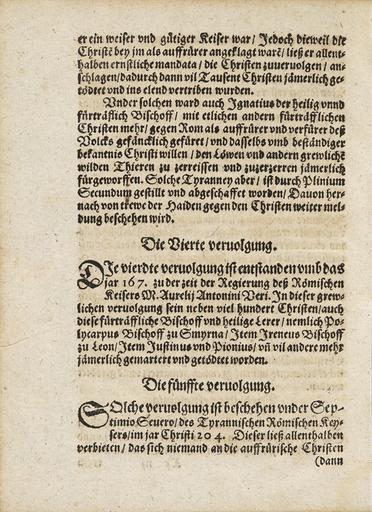 er ein weiser vnd gütiger Keiser war/ Jedoch dieweil die
Christē bey jm als auffrürer angeklagt warē/ ließ er allent-
halben ernstliche mandata/ die Christen zuueruolgen/ an-
schlagen/dadurch dann vil Tausent Christen jämerlich ge-
tödtet vnd ins elend vertriben wurden.
Vnder solchen ward auch Ignatius der heilig vnnd
fürträflich Bischoff/ mit etlichen andern fürträfflichen
Christen mehr/ gegen Rom als auffrürer vnd verfürer deß
Volcks gefäncklich gefüret/ vnd dasselbs vmb beständiger
bekantnis Christi willen/ den Löwen vnd andern grewlichē
wilden Thieren zu zerreissen vnd zuzerzerren jämerlich
fürgeworffen. Solche Tyranney aber/ ist durch Plinium
Secundum gestilt vnd abgeschaffet worden/ Dauon her-
nach von trewe der Haiden gegen den Christen weiter mel-
dung beschehen wird.
Die Vierte veruolgung.
DIe vierdte veruolgung ist entstanden vmb das
jar 167. zu der zeit der Regierung deß Römischen
Keisers M. Aurelij Antonini Veri. In dieser grew-
lichen veruolgung sein neben viel hundert Christen/ auch
diese fürträffliche Bischoff vnd heilige Lerer/ nemlich Po-
lycarpus Bischoff zu Smyrna/ Item Ireneus Bischoff
zu Leon/ Item Justinus vnd Pionius/ vn̄ vil andere mehr
jämerlich gemartert vnd getödtet worden.
Die fünffte veruolgung.
SOlche veruolgung ist beschehen vnder Sep-
timio Seuero/ des Tyrannischen Römischen Key-
sers/ im jar Christi 204. Dieser ließ allenthalben
verbieten/ das sich niemand an die auffrürische Christen
(dann